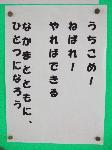 うちこめ!
ねばれ!
やればできる
なかまとともに、
ひとつになろう